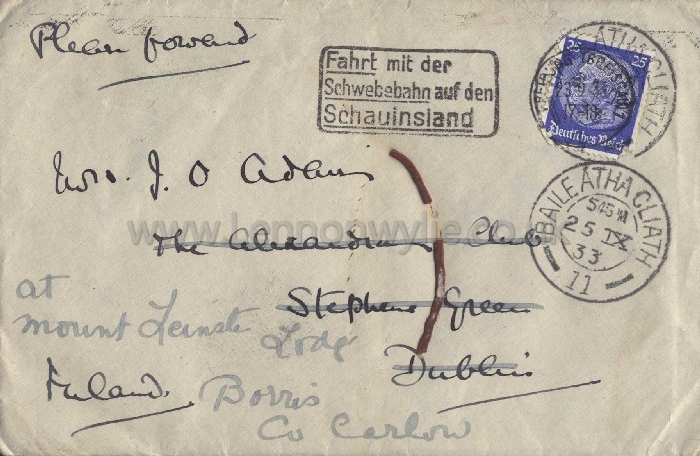 Please forward
Fahrt mit der
Schwebebahn auf den
Schauinsland
25 25
Deutsches Reich
ATHA CLIATH
BAILE ATHA CLIATH
545
25 IX
33
11
Mrs. J. O Adams
The Alexandra Club
Stephens Green
Dublin
Ireland
at
Mount Leinster
Lodge
Borris
Co Carlow